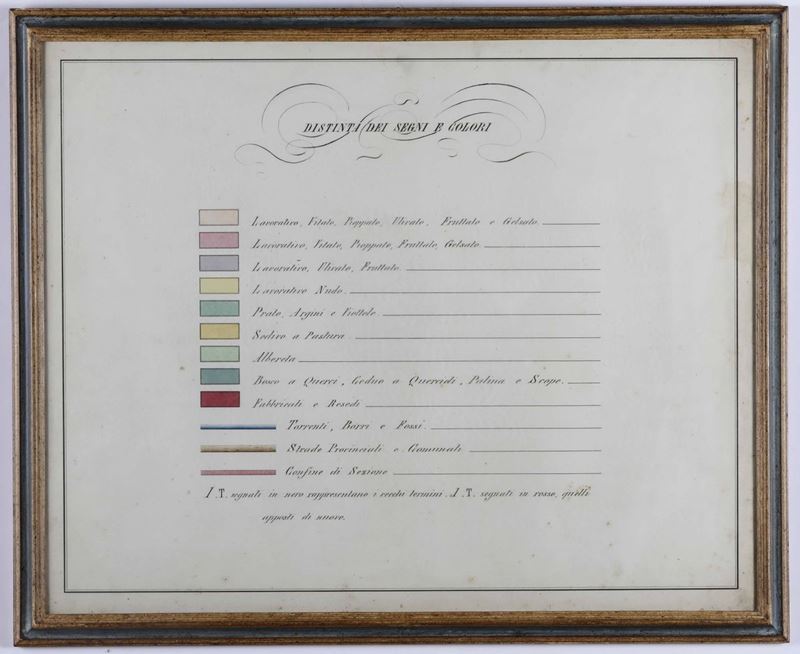 DISTINTI DEI SEGNI E COLORI
Lavorativo, Vitato, Pioppato, Ulivato, Fruttato e Gelsato.
Lavorativo, Vitato, Pioppato, Fruttato, Gelsato.
Lavorativo, Ulivato, Fruttato.
Lavorativo Nudo.
Prato, Argini e Viottole.
Sodivo a Pastura.
Albereta
Bosco a Querci, Ceduo a Quercioli, Palina e Scope.
Fabbricati e Resedi
Torrenti, Borri e Fossi.
Strade Provinciali e Comunali
Confine di Sezione
I .T. segnati in nero rappresentano i vecchi termini. I .T. segnati in rosso, quelli
apposti di nuovo.